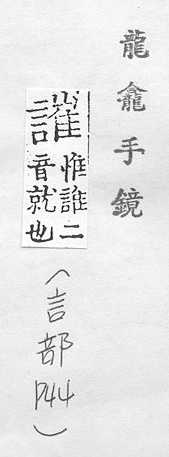 龍龕手鏡
惟誰二
音就也
(言部 P44)